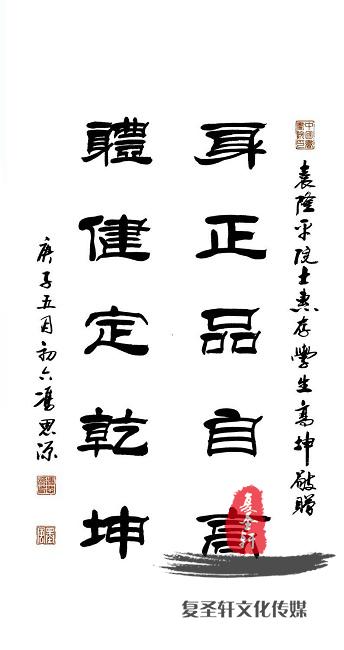 袁隆平院士惠存學生高坤敬贈
身正品自高
體健定乾坤
庚子五月初六馮思源
復圣轩
复圣轩文化传媒